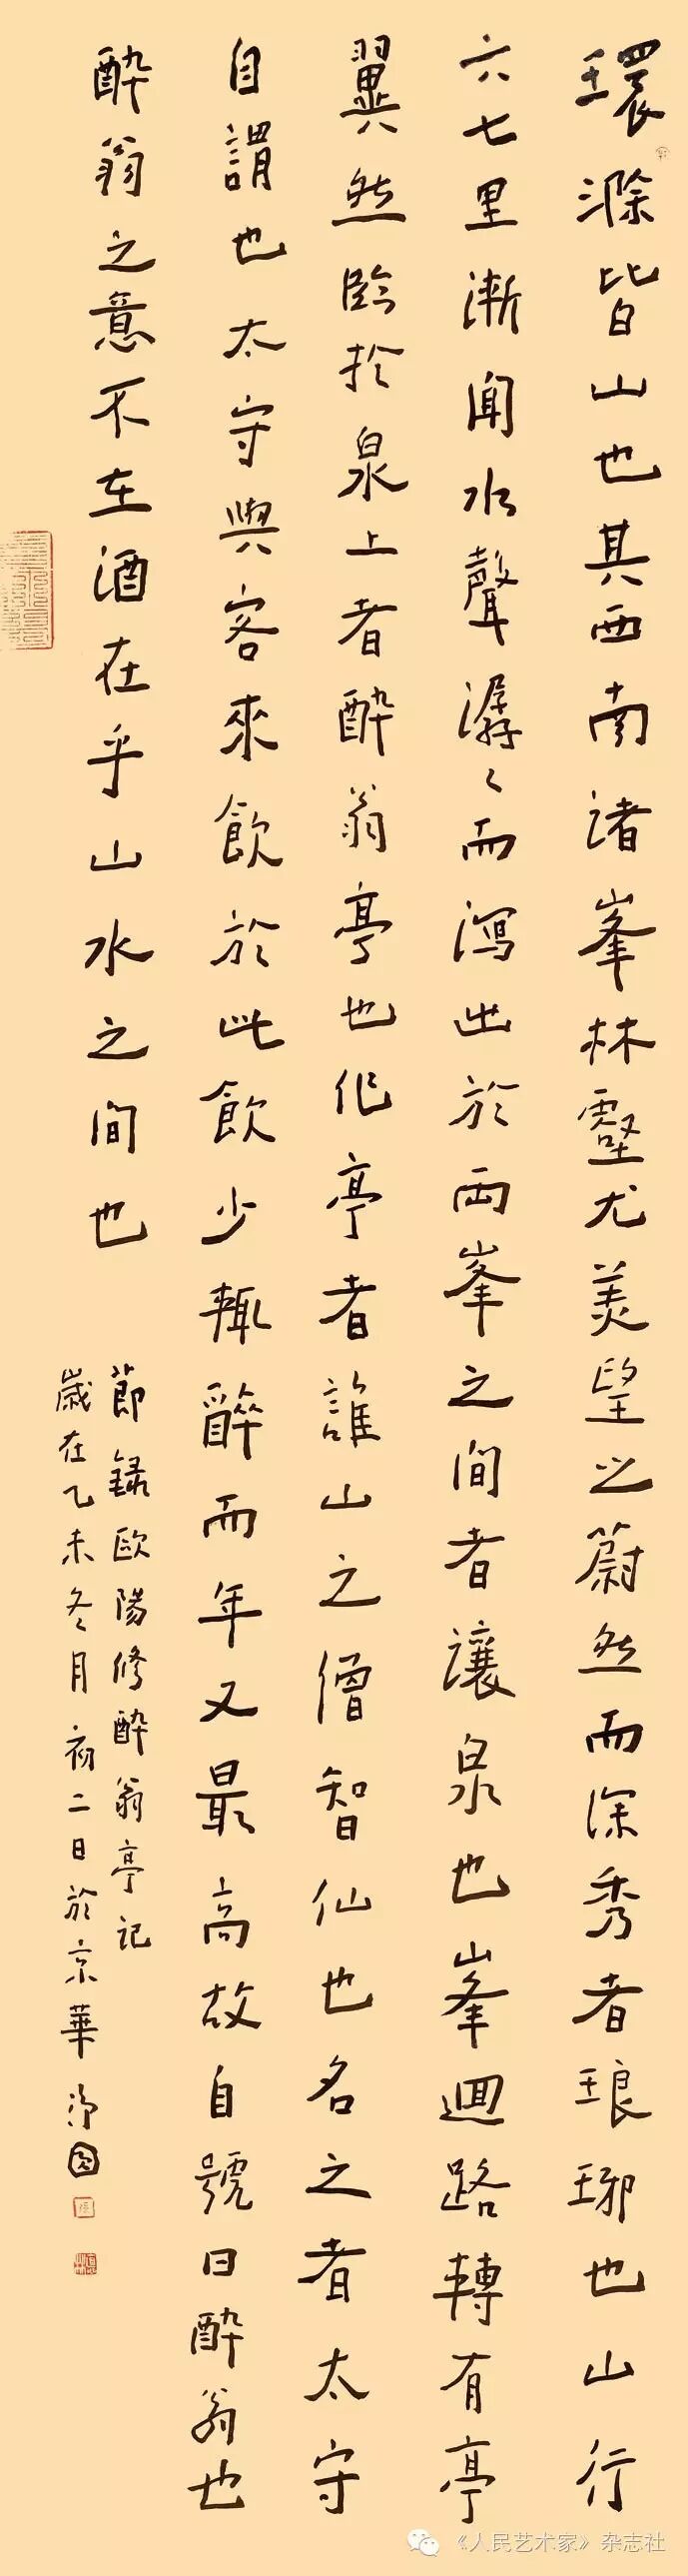 環滁皆山也其西南諸峯林壑尤美望之蔚然而深秀者琅琊也山行
六七里漸聞水聲潺々而瀉出於兩峯之間者讓泉也峯迴路轉有亭
翼然臨於泉上者醉翁亭也作亭者誰山之僧智仙也名之者太守
自謂也太守與客來飲於此飲少輒醉而年又最高故自號曰醉翁也
醉翁之意不在酒在乎山水之間也
節錄歐陽修醉翁亭記
歲在乙未冬月初二日於京華
《人民艺术家》杂志社